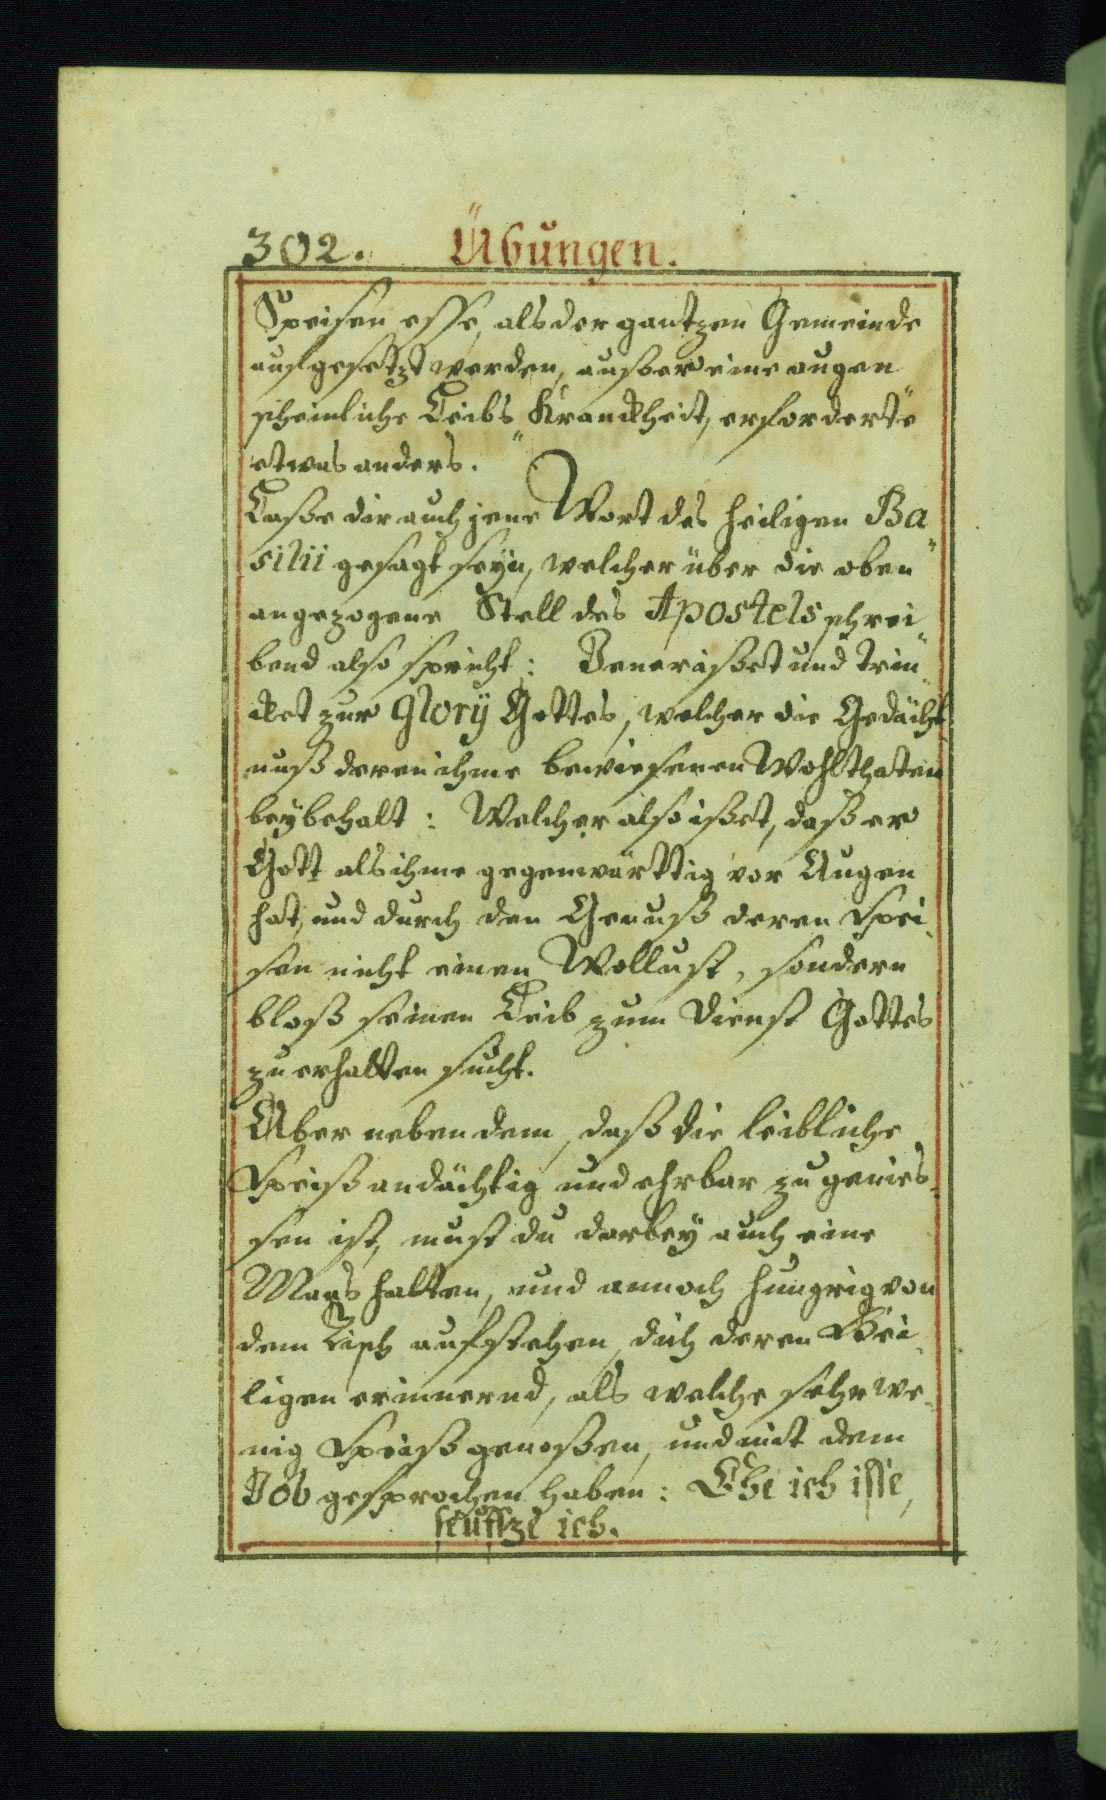 302. Übungen.
Speisen esse, als der gantzen Gemeinde
aufgesetzt werden, ausser eine augen
scheinliche Leibs Kranckheit, erforderte
etwas anders.
Lasse dir auch jene Wort des heiligen Ba
silii gesagt seyn, welcher über die oben
angezogene Stell des Apostels schrei
bend also spricht: Jener isset und trin
cket zur Glorÿ Gottes, welcher die Gedächt
nuß deren ihme bewiesenen Wohlthaten
beÿbehalt: Welcher also isset, daß er
Gott als ihme gegenwärttig vor Augen
hat, und durch den Genuß deren Spei
sen nicht einen Wollust, sondern
bloß seinen Leib zum Dienst Gottes
zu erhalten sucht.
Aber neben dem, daß die leibliche
Speiß andächtig und ehrbar zu genies
sen ist, must du darbeÿ auch eine
Maas halten, und annoch hungrig von
dem Tisch aufstehen, dich deren Hei
ligen erinnernd, als welche sehr we
nig Speiß genossen, und mit dem
Job gesprochen haben: Ehe ich isse,
seuffze ich.